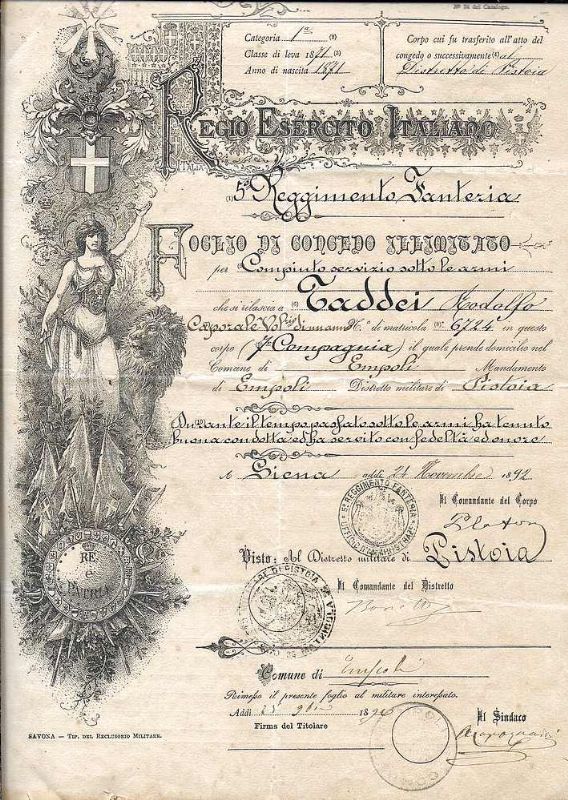 Nº 24 del Catalogo.
Categoria 1ª (1)
Classe di leva 1871 (2)
Anno di nascita 1871
Corpo cui fu trasferito all'atto del
congedo o successivamente (4) al
Distretto di Pistoia
REGIO ESERCITO ITALIANO
ITALIA
5º Reggimento Fanteria
FOGLIO DI CONGEDO ILLIMITATO
per Compiuto servizio sotto le armi
che si rilascia a Taddei Rodolfo
Caporale Nº di matricola 6724 in questo
corpo (7ª Compagnia) il quale prende domicilio nel
Comune di Empoli Mandamento
di Empoli Distretto militare di Pistoia
Durante il tempo passato sotto le armi ha tenuto
buona condotta ed ha servito con fedeltà ed onore
A Siena addì 24 Novembre 1892
5º REGGIMENTO FANTERIA
Il Comandante del Corpo
Visto: Al Distretto militare di Pistoia
Il Comandante del Distretto
RE
e
PATRIA
Comune di Empoli
Rimesso il presente foglio al militare interessato.
Addì 25 9bre 189
Il Sindaco
Firma del Titolare
SAVONA — TIP. DEL RECLUSORIO MILITARE.